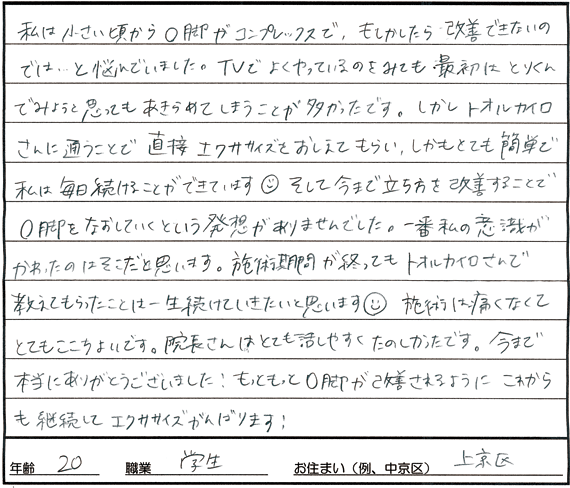 私は小さい頃からO脚がコンプレックスで、もしかしたら改善できないの
では…と悩んでいました。TVでよくやっているのをみても最初はとりくん
でみようと思ってもあきらめてしまうことが多かったです。しかしトオルカイロ
さんに通うことで直接エクササイズをおしえてもらい、しかもとても簡単で
私は毎日続けることができています☺そして今まで立ち方を改善することで
O脚をなおしていくという発想がありませんでした。一番私の意識が
かわったのはそこだと思います。施術期間が終ってもトオルカイロさんで
教えてもらったことは一生続けていきたいと思います☺ 施術は痛くなくて
とてもここちよいです。院長さんはとても話しやすくたのしかったです。今まで
本当にありがとうございました!もっともっとO脚が改善されるようにこれから
も継続してエクササイズがんばります!
年齢 20 職業 学生 お住まい(例、中京区) 上京区